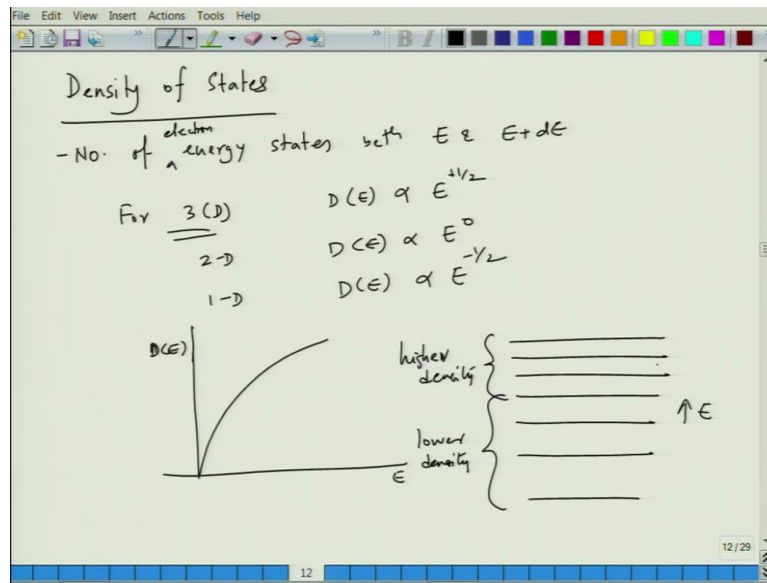 File Edit View Insert Actions Tools Help
Density of States
- No. of electron energy states betⁿ E & E+dE
For 3(D) D(E) α E^+1/2
2-D D(E) α E^0
1-D D(E) α E^-1/2
D(E)
E
higher
density
lower
density
↑ E
12/29
12